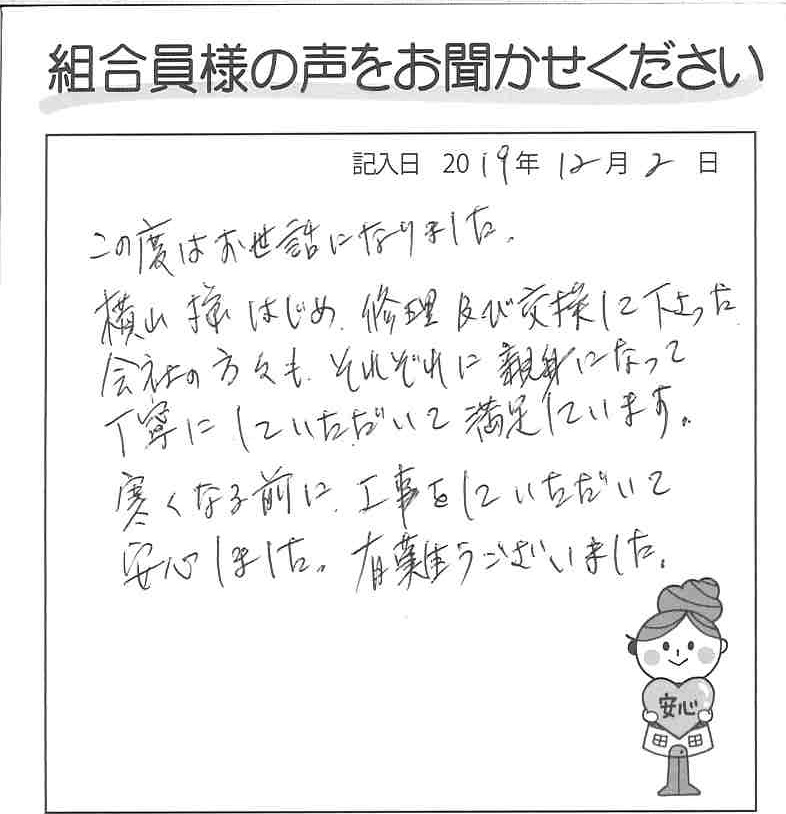 組合員様の声をお聞かせください
記入日 2019年 12月 2日
この度はお世話になりました。
横山様はじめ、修理及び交換して下さった
会社の方々も、それぞれに親身になって
丁寧にしていただいて満足しています。
寒くなる前に、工事をしていただいて
安心しました。有難うございました。
安心